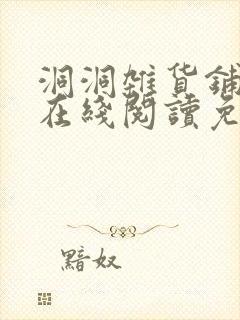 洞洞雜貨鋪
在綫閱讀免
黯奴